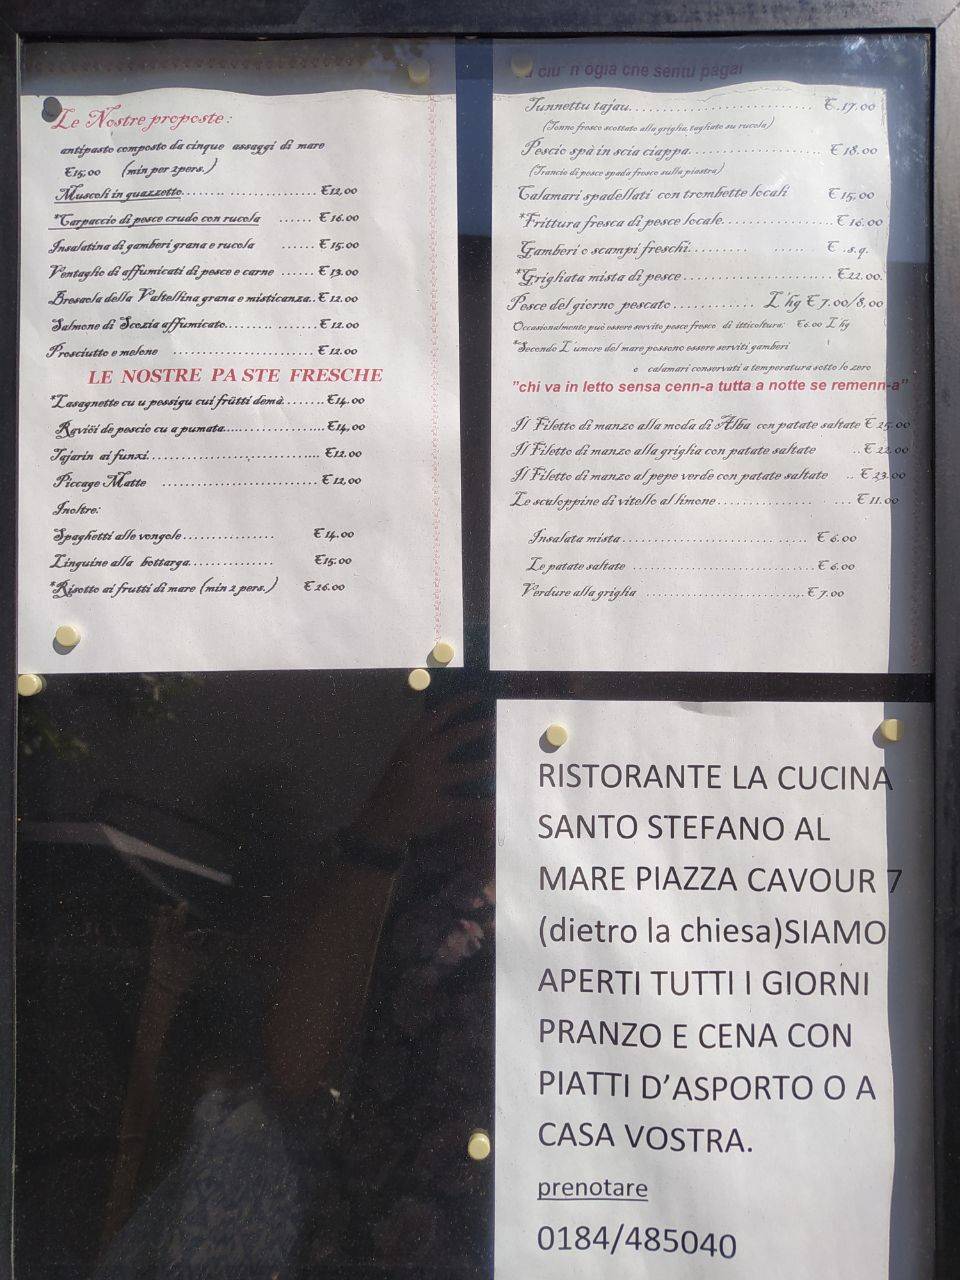 Le Nostre proposte:
antipasto composto da cinque assaggi di mare
€15,00 (min per 2pers.)
Muscoli in guazzetto........ ..................... €12,00
*Carpaccio di pesce crudo con rucola ...... €16.00
Insalatina di gamberi grana e rucola ...... €15.00
Ventaglio di affumicati di pesce e carne ...... €13.00
Bresaola della Valtellina grana e misticanza.. €12.00
Salmone di Scozia affumicato......... ....... €12.00
Prosciutto e melone ........................ €12.00
LE NOSTRE PASTE FRESCHE
*Lasagnette cu u pessigu cui frütti demà.......€14.00
Raviöi de pescio cu a pumata......................€14,00
Tajarin ai funxi................................... €12.00
Piccage Matte ............................... €12,00
Inoltre:
Spaghetti alle vongole................ €14.00
Linguine alla bottarga.............. €15:00
*Risotto ai frutti di mare (min 2 pers.) € 26.00
ciu' n ogia che sentu pagai
Tunnettu tajau............................... €.17.00
(Tonno fresco scottato alla griglia, tagliato su rucola)
Pescio spà in scia ciappa...................... € 18.00
(Trancio di pesce spada fresco sulla piastra)
Calamari spadellati con trombette locali € 15,00
*Frittura fresca di pesce locale.................€16.00
Gamberi o scampi freschi.................... € .s.q.
*Grigliata mista di pesce......................... €22.00.
Pesce del giorno pescato............ L'hg € 7.00/8,00
Occasionalmente può essere servito pesce fresco di itticoltura: €6.00 L'hg
*Secondo L'umore del mare possono essere serviti gamberi
o calamari conservati a temperatura sotto lo zero
"chi va in letto sensa cenn-a tutta a notte se remenn-a"
Il Filetto di manzo alla moda di Alba con patate saltate € 25.00
Il Filetto di manzo alla griglia con patate saltate ..€ 22.00
Il Filetto di manzo al pepe verde con patate saltate .. € 23.00
Le scaloppine di vitello al limone............... ....€ 11.00
Insalata mista............................. € 6.00
Le patate saltate ............................€ 6.00
Verdure alla griglia ........................€ 7.00
RISTORANTE LA CUCINA
SANTO STEFANO AL
MARE PIAZZA CAVOUR 7
(dietro la chiesa)SIAMO
APERTI TUTTI I GIORNI
PRANZO E CENA CON
PIATTI D'ASPORTO O A
CASA VOSTRA.
prenotare
0184/485040